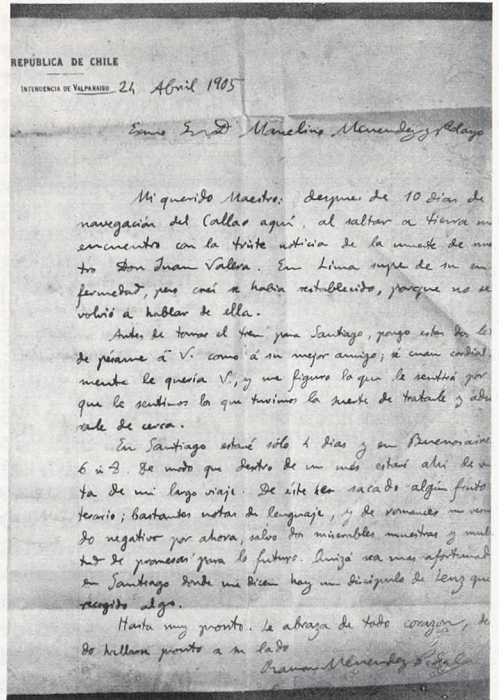 REPÚBLICA DE CHILE
INTENDENCIA DE VALPARAISO 24 Abril 1905
Exmo Sr. D. Marcelino Menendez y Pelayo
Mi querido Maestro: despues de 10 dias de
navegación del Callao aquí, al saltar a tierra m
encuentro con la triste noticia de la muerte de nues
tro Don Juan Valera. En Lima supe de su en
fermedad, pero creí se habia restablecido, porque no se
volvió a hablar de ella.
Antes de tomar el tren para Santiago, pongo estas dos lí
de pésame á V. como á su mejor amigo; sé cuan cordial
mente le quería V., y me figuro lo que le sentirá por
que le sentimos los que tuvimos la suerte de tratarle y
de cerca.
En Santiago estaré sólo 4 dias y en Buenos aires
6 ú 8. De modo que dentro de un mes estaré ahi de vu
ta de mi largo viaje. De éste he sacado algún fruto
terario; bastantes notas de lenguaje, y de romances un
do negativo por ahora, salvo dos miserables muestras y mul
tud de promesas para lo futuro. Quizá sea mas afortunad
en Santiago donde me dicen hay un discípulo de Lenz que
recogido algo.
Hasta muy pronto. Le abraza de todo corazon, de
do hallarse pronto a su lado
Ramon Menendez Pidal